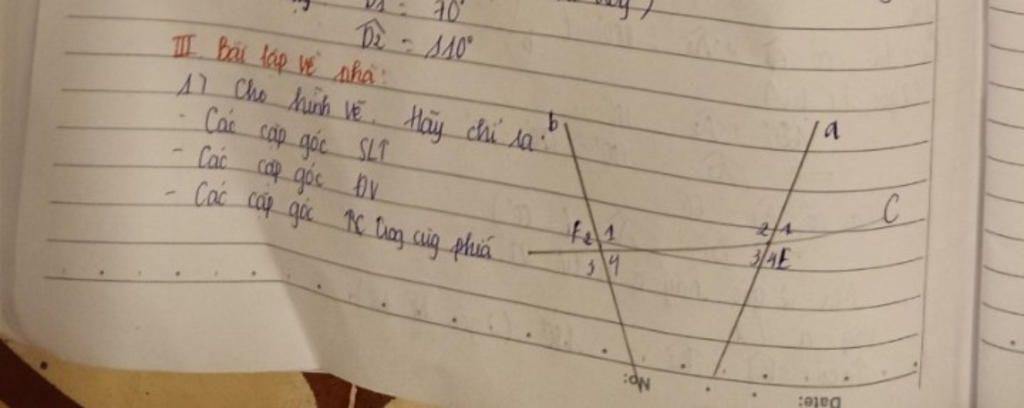 D1 = 70°
D2 = 110°
III. Bài tập về nhà:
1) Cho hình vẽ. Hãy chỉ ra:
- Các cặp góc SLT
- Các cặp góc ĐV
- Các cặp góc TC trong cùng phía
b
a
C
F 2 1
3 4
2 1
3 4 E
No:
Date: